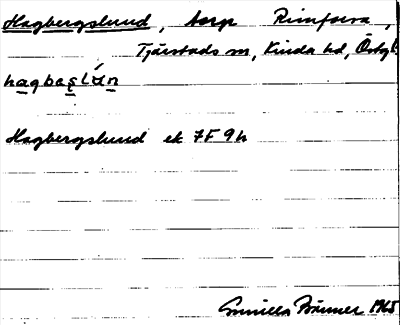 Hagbergslund, torp Rimforsa,
Tjärstads sn, Kinda hd, Östgl.
hagbæslún
Hagbergslund ek 7F 9h
Gunilla Brünner 1965